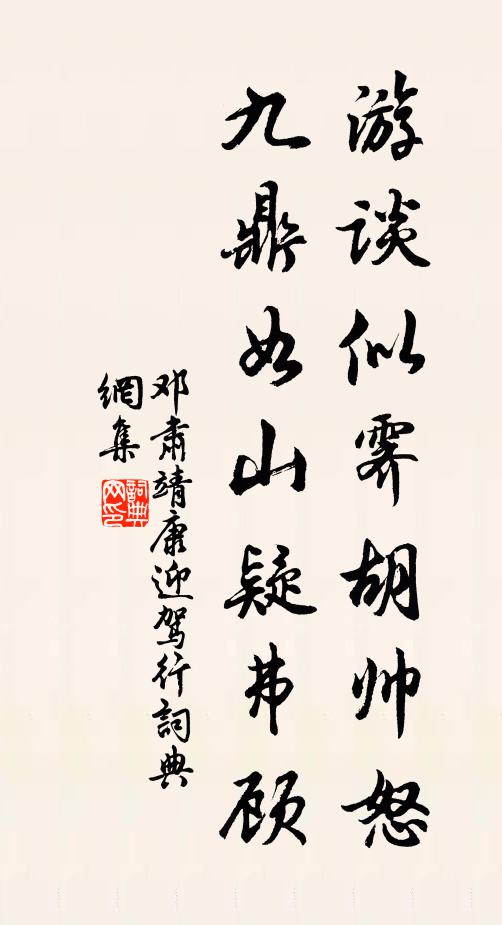 游谈似霁胡帅怒
九鼎如山疑弗顾
邓肃靖康迎驾行詞典
網集
詞典
网印